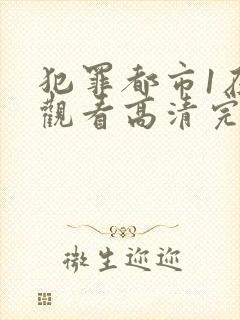 犯罪都市1在
觀看高清完
微生迩迩